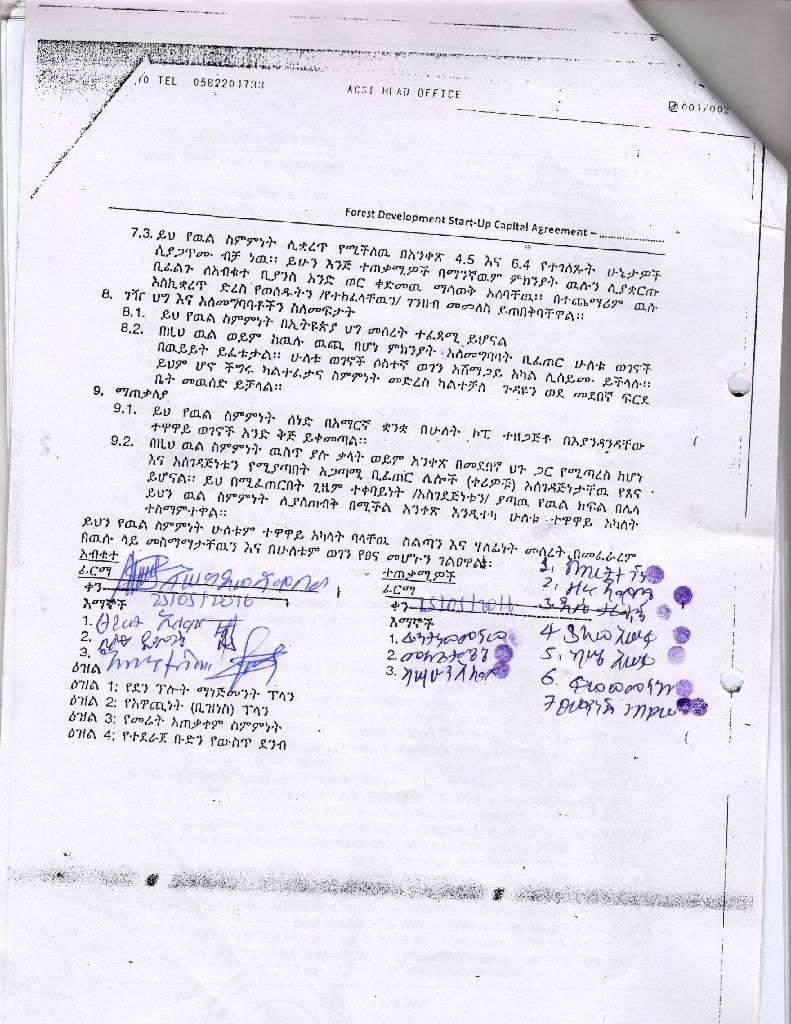 TEL 0582201733 ACSI HEAD OFFICE 001/002
Forest Development Start-Up Capital Agreement – ........................
7.3. ይህ የዉል ስምምነት ሊቋረጥ የሚችለዉ በአንቀጽ 4.5 እና 6.4 የተገለጹት ሁኔታዎች
ሲያጋጥሙ ብቻ ነዉ፡፡ ይሁን እንጅ ተጠቃሚዎች በማንኛዉም ምክንያት ዉሉን ሊያቋርጡ
ቢፈልጉ ለአብቁተ ቢያንስ አንድ ወር ቀድመዉ ማሳወቅ አለባቸዉ፡፡ በተጨማሪም ዉሉ
እስኪቋረጥ ድረስ የወሰዱትን /የተከፈላቸዉን/ ገንዘብ መመለስ ይጠበቅባቸዋል፡፡
8. ገዥ ህግ እና አለመግባባቶችን ስለመፍታት
8.1. ይህ የዉል ስምምነት በኢትዮጵያ ህግ መሰረት ተፈጻሚ ይሆናል
8.2. በዚህ ዉል ወይም ከዉሉ ዉጪ በሆነ ምክንያት አለመግባባት ቢፈጠር ሁለቱ ወገኖች
በዉይይት ይፈቱታል፡፡ ሁለቱ ወገኖች ሶስተኛ ወገን አሸማጋይ አካል ሊሰይሙ ይችላሉ፡፡
ይህም ሆኖ ችግሩ ካልተፈታና ስምምነት መድረስ ካልተቻለ ጉዳዩን ወደ መደበኛ ፍርድ
ቤት መዉሰድ ይቻላል፡፡
9. ማጠቃለያ
9.1. ይህ የዉል ስምምነት ሰነድ በአማርኛ ቋንቋ በሁለት ኮፒ ተዘጋጅቶ በእያንዳንዳቸው
ተዋዋይ ወገኖች አንድ ቅጅ ይቀመጣል፡፡
9.2. በዚህ ዉል ስምምነት ዉስጥ ያሉ ቃላት ወይም አንቀጽ በመደበኛ ህጉ ጋር የሚጣረስ ከሆነ
እና አስገዳጅነቱን የሚያጣበት አጋጣሚ ቢፈጠር ሌሎች (ቀሪዎቹ) አስገዳጅነታቸዉ የጸና
ይሆናል፡፡ ይህ በሚፈጠርበት ጊዜም ተቀባይነት /አስገደጅነቱን/ ያጣዉ የዉል ክፍል በሌላ
ይህን ዉል ስምምነት ሊያስጠብቅ በሚችል አንቀጽ እንዲተካ ሁለቱ ተዋዋይ አካላት
ተስማምተዋል፡፡
ይህን የዉል ስምምነት ሁለቱም ተዋዋይ አካላት ባላቸዉ ስልጣን እና ሃላፊነት መሰረት በመፈራረም
በዉሉ ላይ መስማማታቸዉን እና በሁለቱም ወገን የፀና መሆኑን ገልፀዋል፡
አብቁተ
ፊርማ
ቀን 25/05/2016
እማኞች
1.
2.
3.
ተጠቃሚዎች
ፊርማ
ቀን 25/05/2016
እማኞች
1.
2.
3.
1.
2.
3.
4
5.
6.
7
ዕዝል
ዕዝል 1; የደን ፕሎት ማነጅመንት ፕላን
ዕዝል 2: የአዋጪነት (ቢዝነስ) ፕላን
ዕዝል 3: የመሬት አጠቃቀም ስምምነት
ዕዝል 4; የተደራጀ ቡድን የውስጥ ደንብ